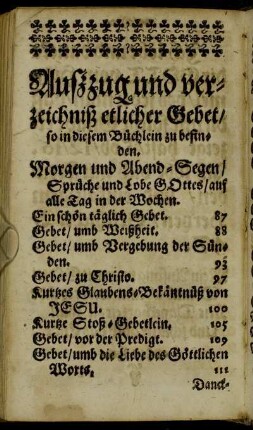 Außzug und ver-
zeichniß etlicher Gebet/
so in diesem Büchlein zu befin-
den.
Morgen und Abend-Segen/
Sprüche und Lobe GOttes/ auf
alle Tag in der Wochen.
Ein schön täglich Gebet. 87
Gebet/ umb Weißheit. 88
Gebet/ umb Vergebung der Sün-
den. 93
Gebet/ zu Christo. 97
Kurtzes Glaubens-Bekäntnüß von
JESU. 100
Kurtze Stoß-Gebetlein. 105
Gebet/ vor der Predigt. 109
Gebet/ umb die Liebe des Göttlichen
Worts. 111
Danck-